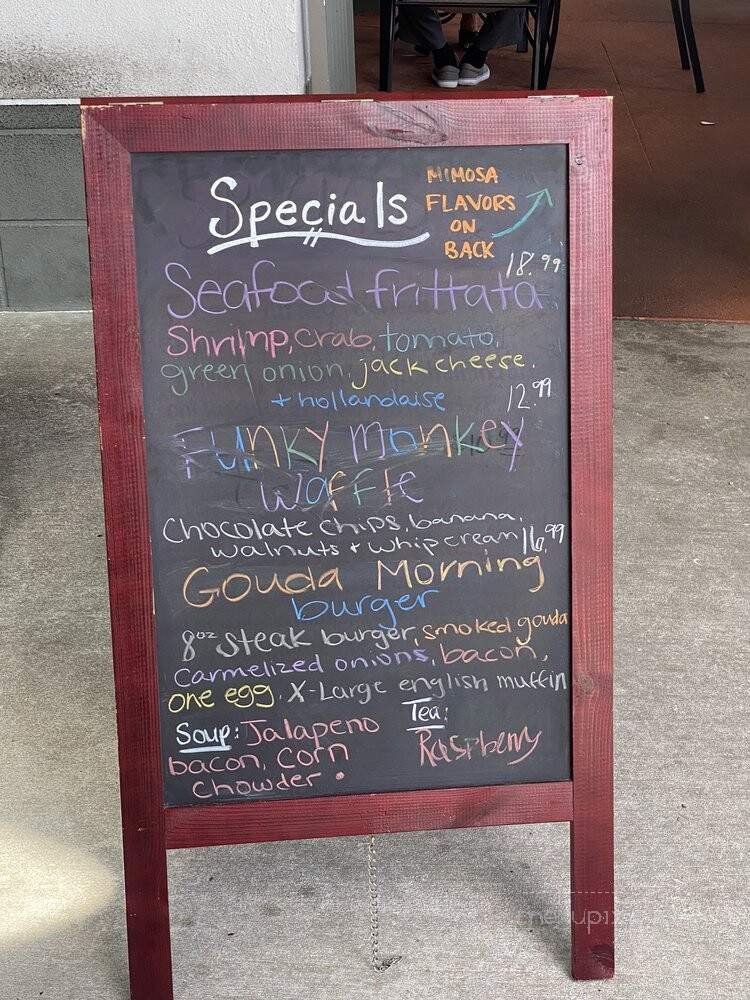 Specials
MIMOSA
FLAVORS
ON
BACK
18.99
Seafood frittata
Shrimp, crab, tomato,
green onion, jack cheese.
+ hollandaise
12.99
Funky monkey
waffle
Chocolate chips, banana,
walnuts + whipcream
16.99
Gouda Morning
burger
8oz steak burger, smoked gouda
Carmelized onions, bacon,
one egg. X-Large english muffin
Soup: Jalapeno
bacon, corn
chowder
Tea:
Raspberry